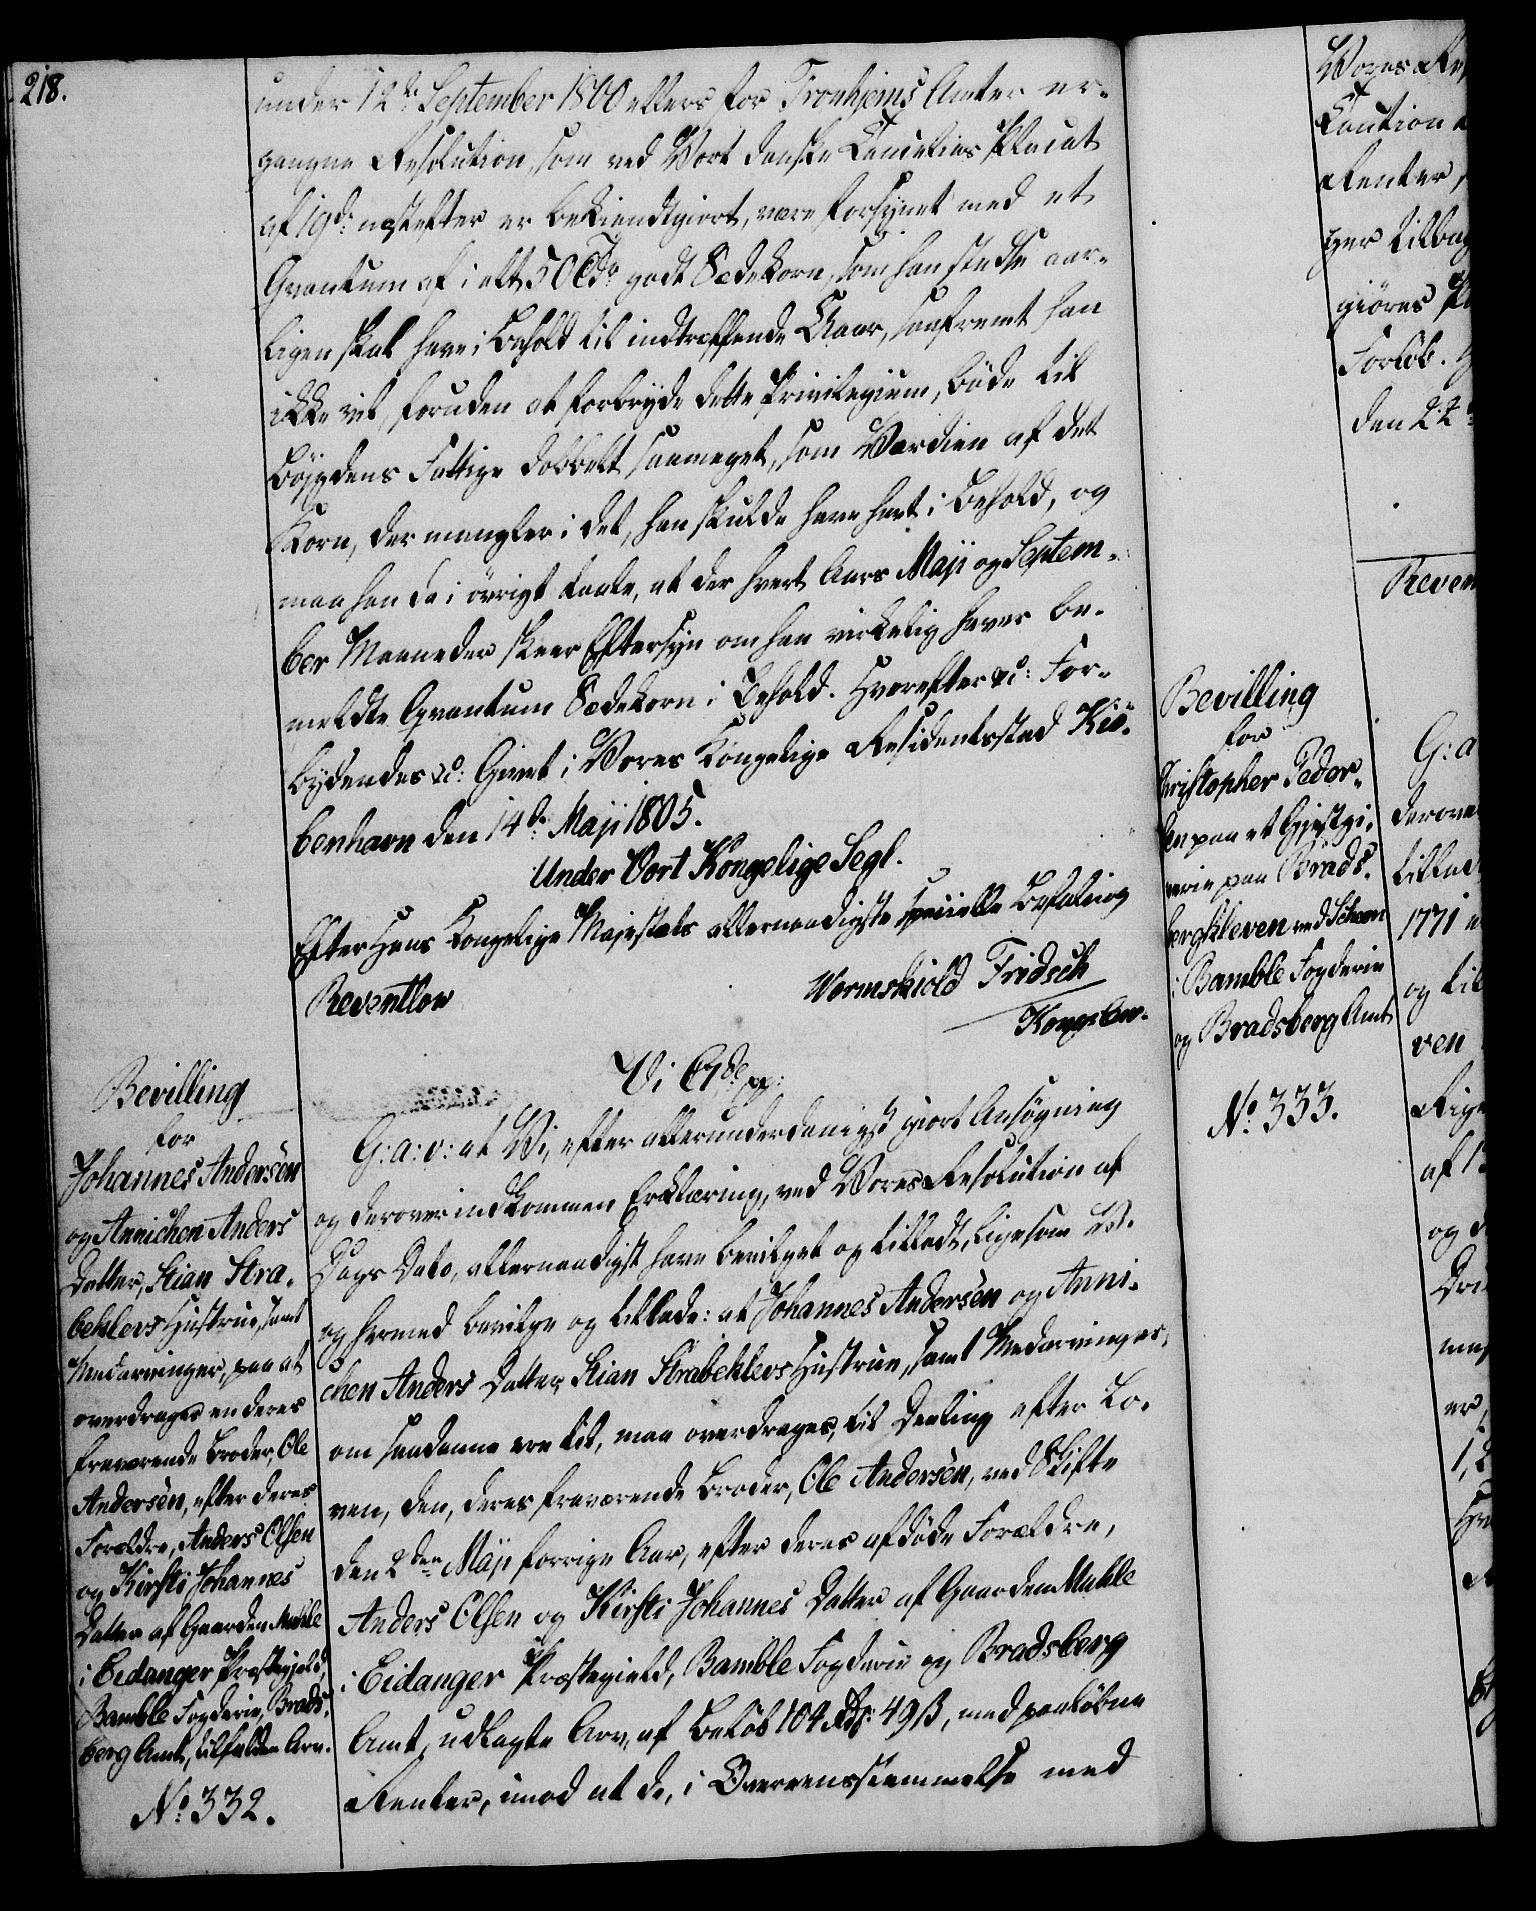 218.
under 12de September 1800 ellers for Tronhjems Amter er-
gangne Resolution, som ved Vort danske Cancelies Placat
af 19de næstefter er bekiendtgiort, være forsÿnet med et
Qvantum af i alt 50 Tdr godt Sædekorn, som han stedse aar-
ligen skal have i Behold til indtræffende Uaar, saafremt han
ikke vil, foruden at forbrÿde dette Privilegium, bøde til
Bøÿgdens Fattige dobbelt saameget, som Værdien af det
Korn, der mangler i det, han skulde have havt i Behold, og
maa han da i øvrigt taale, at der hvert Aars Maji og Septem-
ber Maaneder skeer Eftersÿn om han virkelig haver be-
meldte Qvantum Sædekorn i Behold. Hvorefter &c: For-
bydendes &c: Givet i Vores Kongelige Residentsstad Kiö-
benhavn den 14de Maji 1805.
Under Vort Kongelige Segl.
Efter Hans Kongelige Majestæts allernaadigste specielle Befaling
Reventlow
Wormskiold Fridsch
Kongslew.
Bevilling
for
Johannes Andersen
og Annichen Anders
Datter, Kian Stra-
behlevs Hustrue, samt
Medarvinger, paa at
overdrages en deres
fraværende Broder, Ole
Andersen, efter deres
Forældre, Anders Olsen
og Kirsti Johannes
Datter af Gaarden Muhle
i Eidanger Præstegjeld,
Bamble Fogderie, Brads-
berg Amt, tilfalden Arv.
No 332.
Vi C7de pp:
G: a: v: at Vi, efter allerunderdanigst giort Ansøgning
og derover indkommen Erklæring, ved Vores Resolution af
Dags Dato, allernaadigst have bevilget og tilladt, ligesom Vi
og hermed bevilge og tillade: at Johannes Andersen og Anni-
chen Anders Datter, Kian Strabehlevs Hustrue, samt Medarvinger,
om saadanne ere til, maa overdrages, til Deeling efter Lo-
ven, den, deres fraværende Broder, Ole Andersen, ved Skifte
den 2den Maji forrige Aar, efter deres afdøde Forældre,
Anders Olsen og Kirsti Johannes Datter af Gaarden Muhle
i Eidanger Præstegield, Bamble Fogderie og Bradsberg
Amt, udlagte Arv, af Beløb 104 Rdr: 49 ß, med paaløbne
Renter, imod at de, i Overeensstemmelse med
Bevilling
for
Christopher Peder-
sen paa et Gjæstgi-
verie paa Brads-
bergkleven ved Scheen
i Bamble Fogderie
og Bradsberg Amt
No 333.
Vores
Caution
Renter,
tilbag
giøres
Forløb.
den 22
Reven
G: a
derove
tillad
1771
og til
ven
af
og